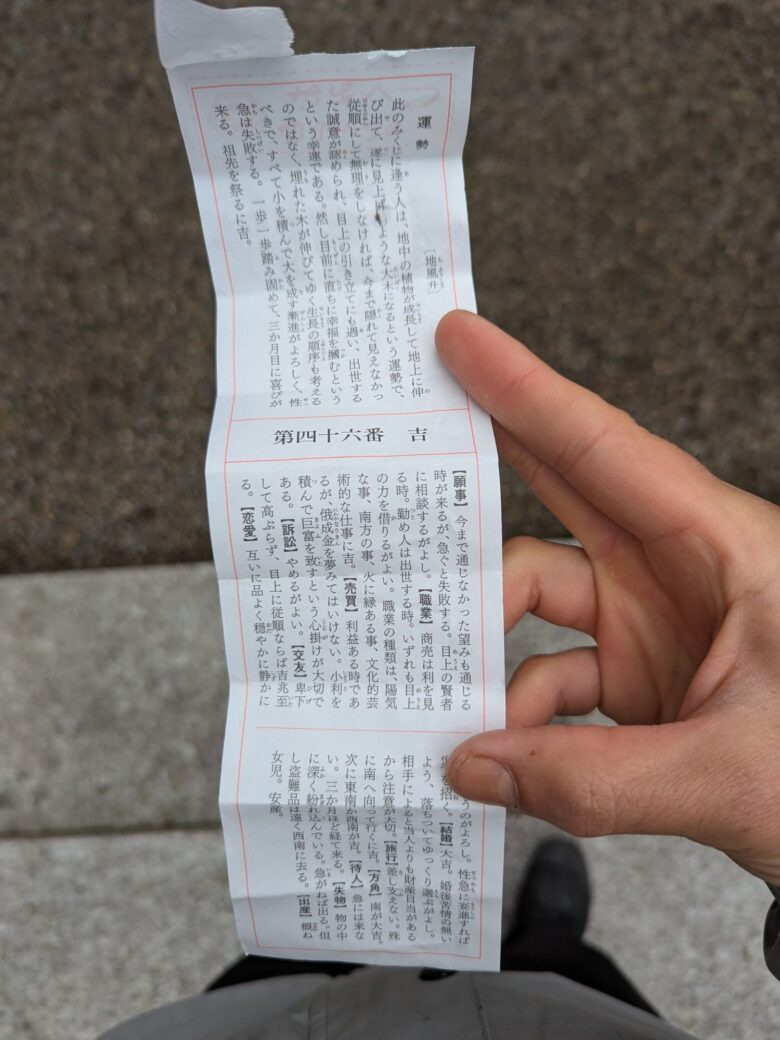 運勢
〔地風升〕
此のみくじに逢う人は、地中の植物が成長して地上に伸
び出て、遂に見上ような大木になるという運勢で、
従順にして無理をしなければ、今まで隠れて見えなかっ
た誠意が認められ、目上の引き立てにも遇い、出世する
という幸運である。然し目前に直ちに幸福を摑むという
のではなく、埋れた木が伸びてゆく生長の順序も考える
べきで、すべて小を積んで大を成す漸進がよろしく、性
急は失敗する。一歩一歩踏み固めて、三か月目に喜びが
来る。祖先を祭るに吉。
第四十六番 吉
【願事】今まで通じなかった望みも通じる
時が来るが、急ぐと失敗する。目上の賢者
に相談するがよし。【職業】商売は利を見
る時。勤め人は出世する時。いずれも目上
の力を借りるがよい。職業の種類は、陽気
な事、南方の事、火に縁ある事、文化的芸
術的な仕事に吉。【売買】利益ある時であ
るが、俄成金を夢みてはいけない。小利を
積んで巨富を致すという心掛けが大切で
ある。【訴訟】やめるがよい。【交友】卑下
して高ぶらず、目上に従順ならば吉兆至
る。【恋愛】互いに品よく穏やかに静かに
うのがよろし。性急に妄進すれば
を招く。【結婚】大吉。婚後苦情の無い
よう、落ちついてゆっくり選ぶがよし。
相手によると当人よりも財産目当がある
から注意が大切。【旅行】差し支えない。殊
に南へ向って行くに吉。【方角】南が大吉。
次に東南か西南が吉。【待人】急には来な
い。三か月ほど経て来る。【失物】物の中
に深く紛れ込んでいる。急がねば出る。但
し盗難品は遠く西南に去る。【出産】概ね
女児。安産。